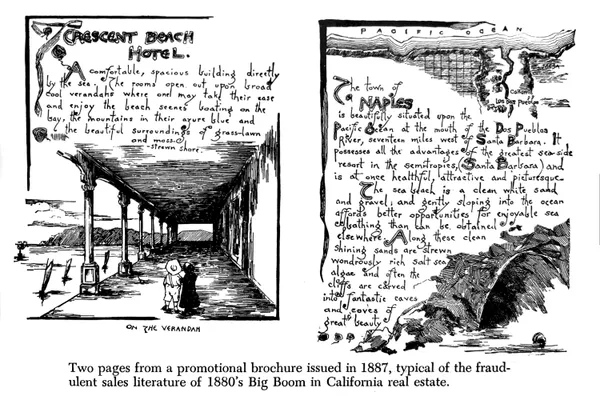 CRESCENT BEACH
HOTEL.
A comfortable, spacious building directly
by the sea. The rooms open out upon broad
cool verandahs where one may take their ease
and enjoy the beach scenes boating on the
bay, the mountains in their azure blue and
the beautiful surroundings of grass-lawn
and moss-
strewn shore.
ON THE VERANDAH
PACIFIC OCEAN
The town of
NAPLES
is beautifully situated upon the
Pacific Ocean at the mouth of the Dos Pueblos
River, seventeen miles west of Santa Barbara. It
possesses all the advantages of the greatest sea-side
resort in the semitropics, (Santa Barbara) and
is at once healthful, attractive and picturesque.
The sea beach is a clean white sand
and gravel, and gently sloping into the ocean
affords better opportunities for enjoyable sea
bathing than can be obtained
elsewhere. Along these clean
shining sands are strewn
wondrously rich salt sea
algae and often the
cliffs are carved
into fantastic caves
and coves of
great beauty
Two pages from a promotional brochure issued in 1887, typical of the fraud-
ulent sales literature of 1880's Big Boom in California real estate.